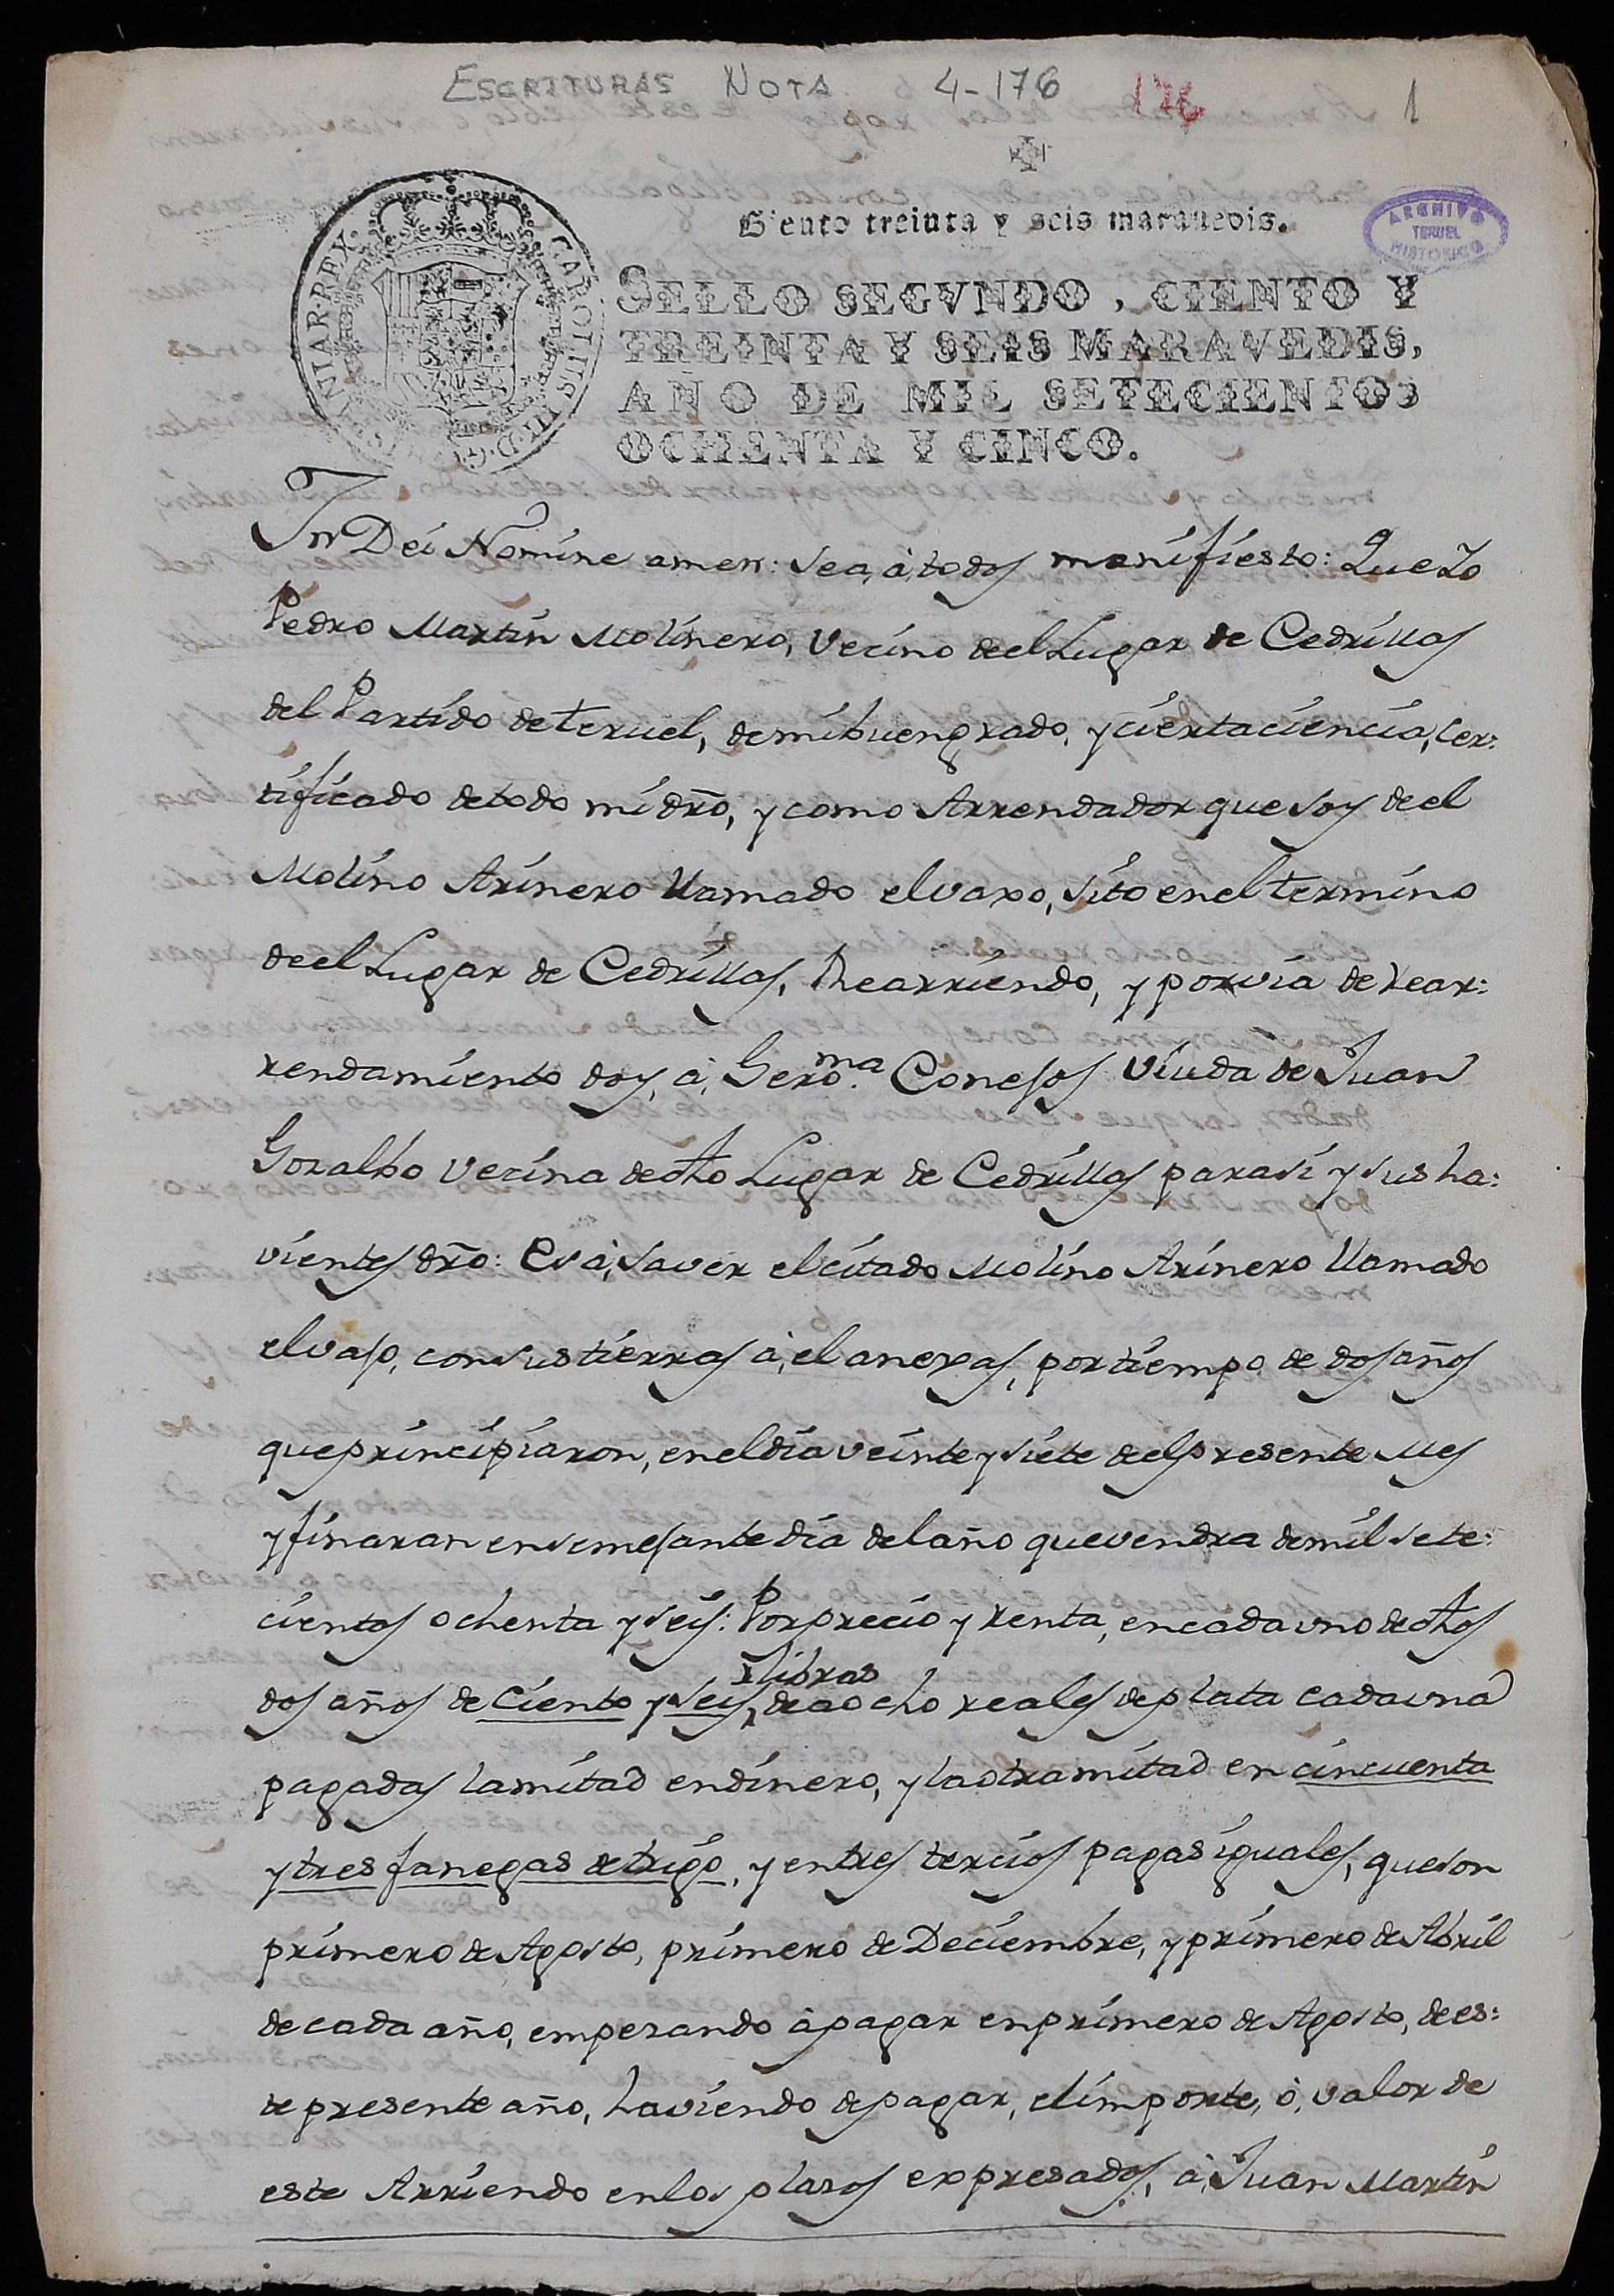 ESCRITURAS NOTA 4-176 176 1
Ciento treinta y seis maravedis.
ARCHIVO
TERUEL
HISTORICO
CAROLUS III D G HISPANIAR REX
SELLO SEGVNDO, CIENTO Y
TREINTA Y SEIS MARAVEDIS,
AÑO DE MIL SETECIENTOS
OCHENTA Y CINCO.
In Dei Nomine amen: sea, à, todos manifiesto: Que Yo
Pedro Martin Molinero, Vecino de el Lugar de Cedrillas
del Partido de teruel, de mi buen grado, y cierta ciencia, Cer:
tificado de todo mi dro, y como Arrendador que soy de el
Molino Arinero llamado el vaxo, sito en el termino
de el Lugar de Cedrillas, Rearriendo, y por via de rear:
rendamiento doy, à, Gerom.ª Conejos Viuda de Juan
Gozalbo Vecina de dho Lugar de Cedrillas para si y sus ha:
vientes dro: Es à, saver el citado Molino Arinero llamado
el vajo, con sus tierras à, el anexas, por tiempo de dos años
que principiaron, en el dia veinte y siete de el presente Mes
y finaran en semejante dia del año que vendra de mil sete:
cientos ochenta y seis: Por precio y renta, en cada uno de dhos
libras
dos años de Ciento y seis, de a ocho reales de plata cada una
pagadas la mitad en dinero, y la otra mitad en cincuenta
y tres fanegas de trigo, y en tres tercios pagas iguales, que son
primero de Agosto, primero de Deciembre, y primero de Abril
de cada año, empezando à pagar en primero de Agosto, de es:
te presente año, haviendo de pagar, el importe, ò, valor de
este Arriendo en los plazos expresados, à, Juan Martin